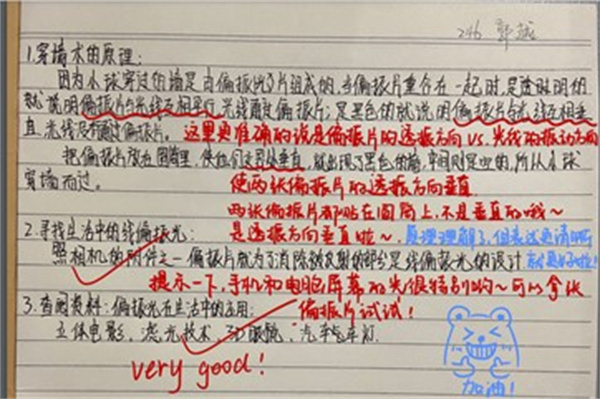 246 郭越
1.穿墙术的原理:
因为小球穿过的墙是由偏振光片组成的,当偏振片重合在一起时,是透明的
就说明偏振片与光线互相平行,光线通过偏振片;是黑色的就说明偏振片与光线互相垂
直,光线没有通过偏振片。这里更准确的说是偏振片的透振方向vs.光线的振动方向
把偏振片放在圆筒里,使他们互相垂直,就出现了黑色的墙,中间则是空的,所以小球
穿墙而过。
使两张偏振片的透振方向垂直
两张偏振片都贴在圆筒上,不是垂直的哦~
2.寻找生活中的线偏振光:
是透振方向垂直啦~
原理理解了,但表达更清晰
就更好啦!
照相机的附件之一偏振片就为了消除被反射的部分是线偏振光的设计
提示一下,手机和电脑屏幕的光很特别哟~可以拿张
偏振片试试!
3.查阅资料:偏振光在生活中的应用:
立体电影、滤光技术、3D眼镜、汽车车灯.
very good!
加油!